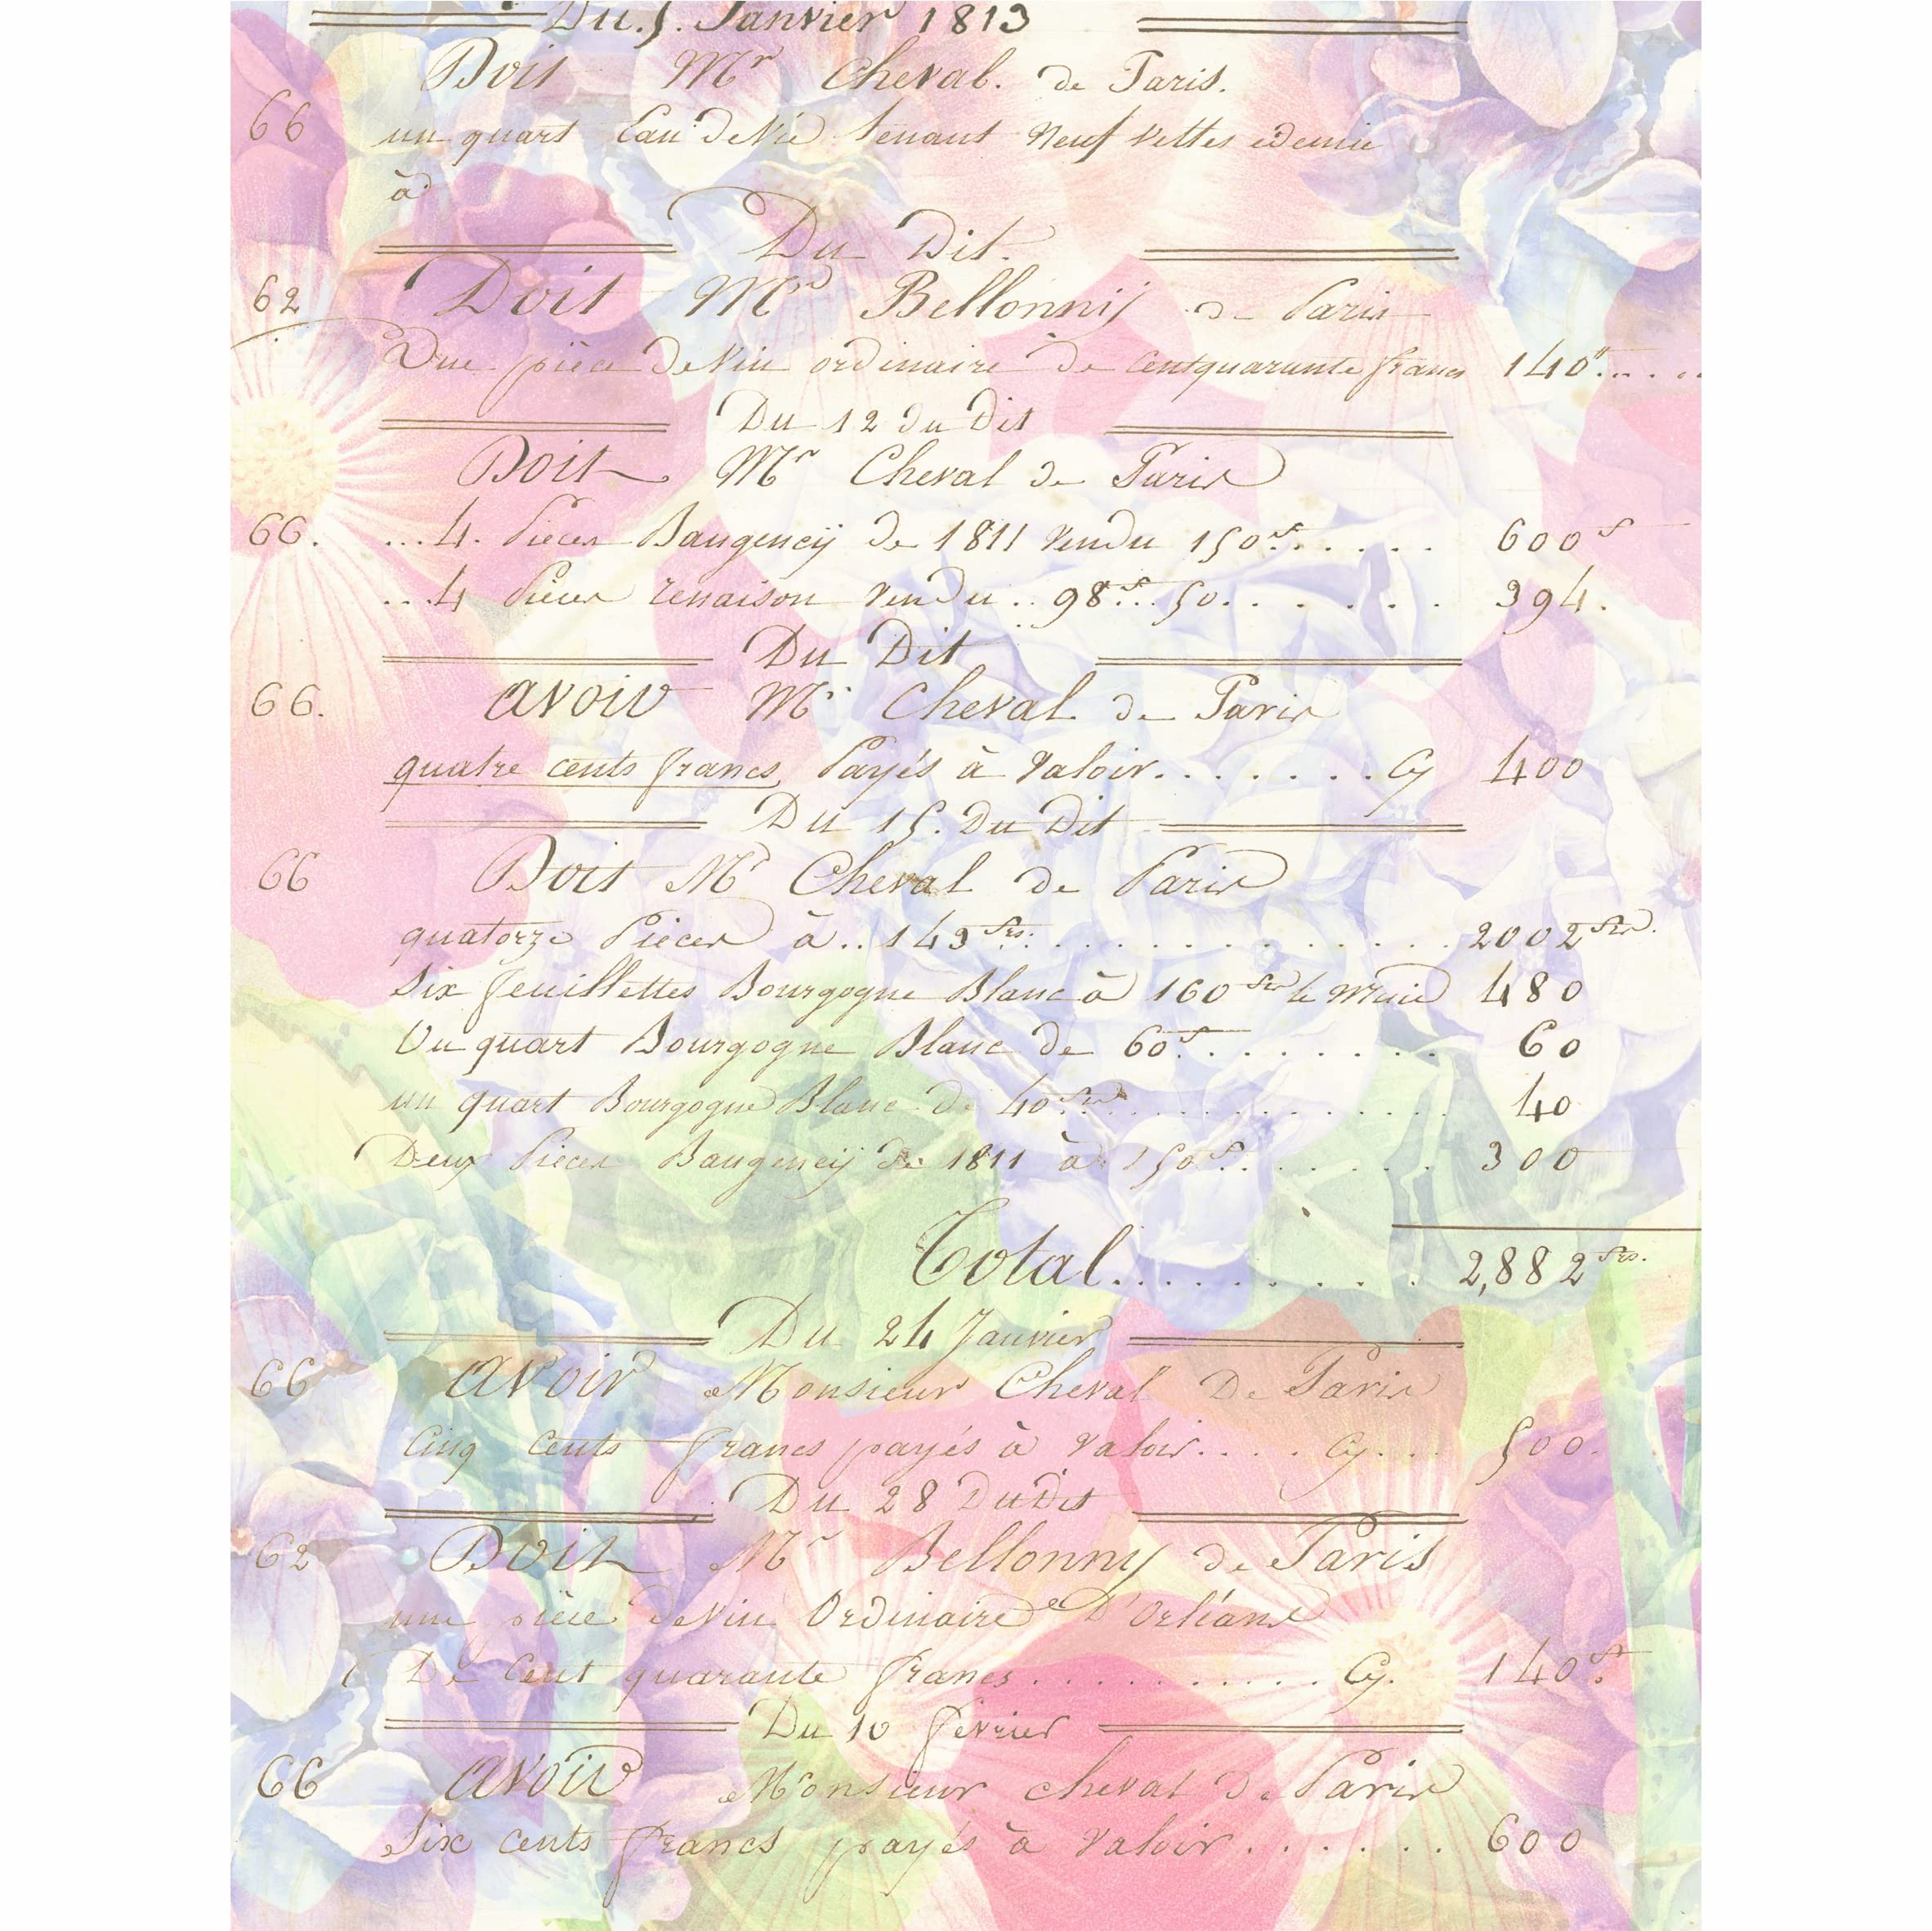 Du. 5. Janvier 1813
Doit Mr Cheval. de Paris.
66 un quart Eau de Vie tenant Neuf Veltes et Demie
à
Du Dit.
62 Doit Mr Bellonnij de Paris
Une pièce de Vin ordinaire de Centquarante francs 140"....
Du 12 du Dit
Doit Mr Cheval de Paris
66. ...4. Pièces Baugencÿ de 1811 Vendu 150f...... 600f
...4 Pièces renaison Vendu.. 98f...50....... 394.
Du Dit
66. avoir Mr Cheval de Paris
quatre cents francs, Payés à Valoir....... Cy 400
Du 15. Du Dit
66 Doit Mr Cheval de Paris
quatorze Pièces à.. 143frs. ............... 2002frs.
Six feuillettes Bourgogne Blanc à 160frs le Muid 480
Un quart Bourgogne Blanc de 60f......... 60
un quart Bourgogne Blanc de 40frs............... 40
Deux Pièces Baugencÿ de 1811 à 150f....... 300
Total.......... 2,882frs.
Du 24 Janvier
66 avoir Monsieur Cheval De Paris
Cinq Cents francs payés à Valoir.... Cy... 500.
Du 28 Du Dit
62 Doit Mr Bellonny de Paris
une pièce de Vin Ordinaire D'Orléans
De Cent quarante francs........... Cy. 140f.
Du 10 février
66 avoir Monsieur cheval De Paris
Six cents francs payés à Valoir....... 600